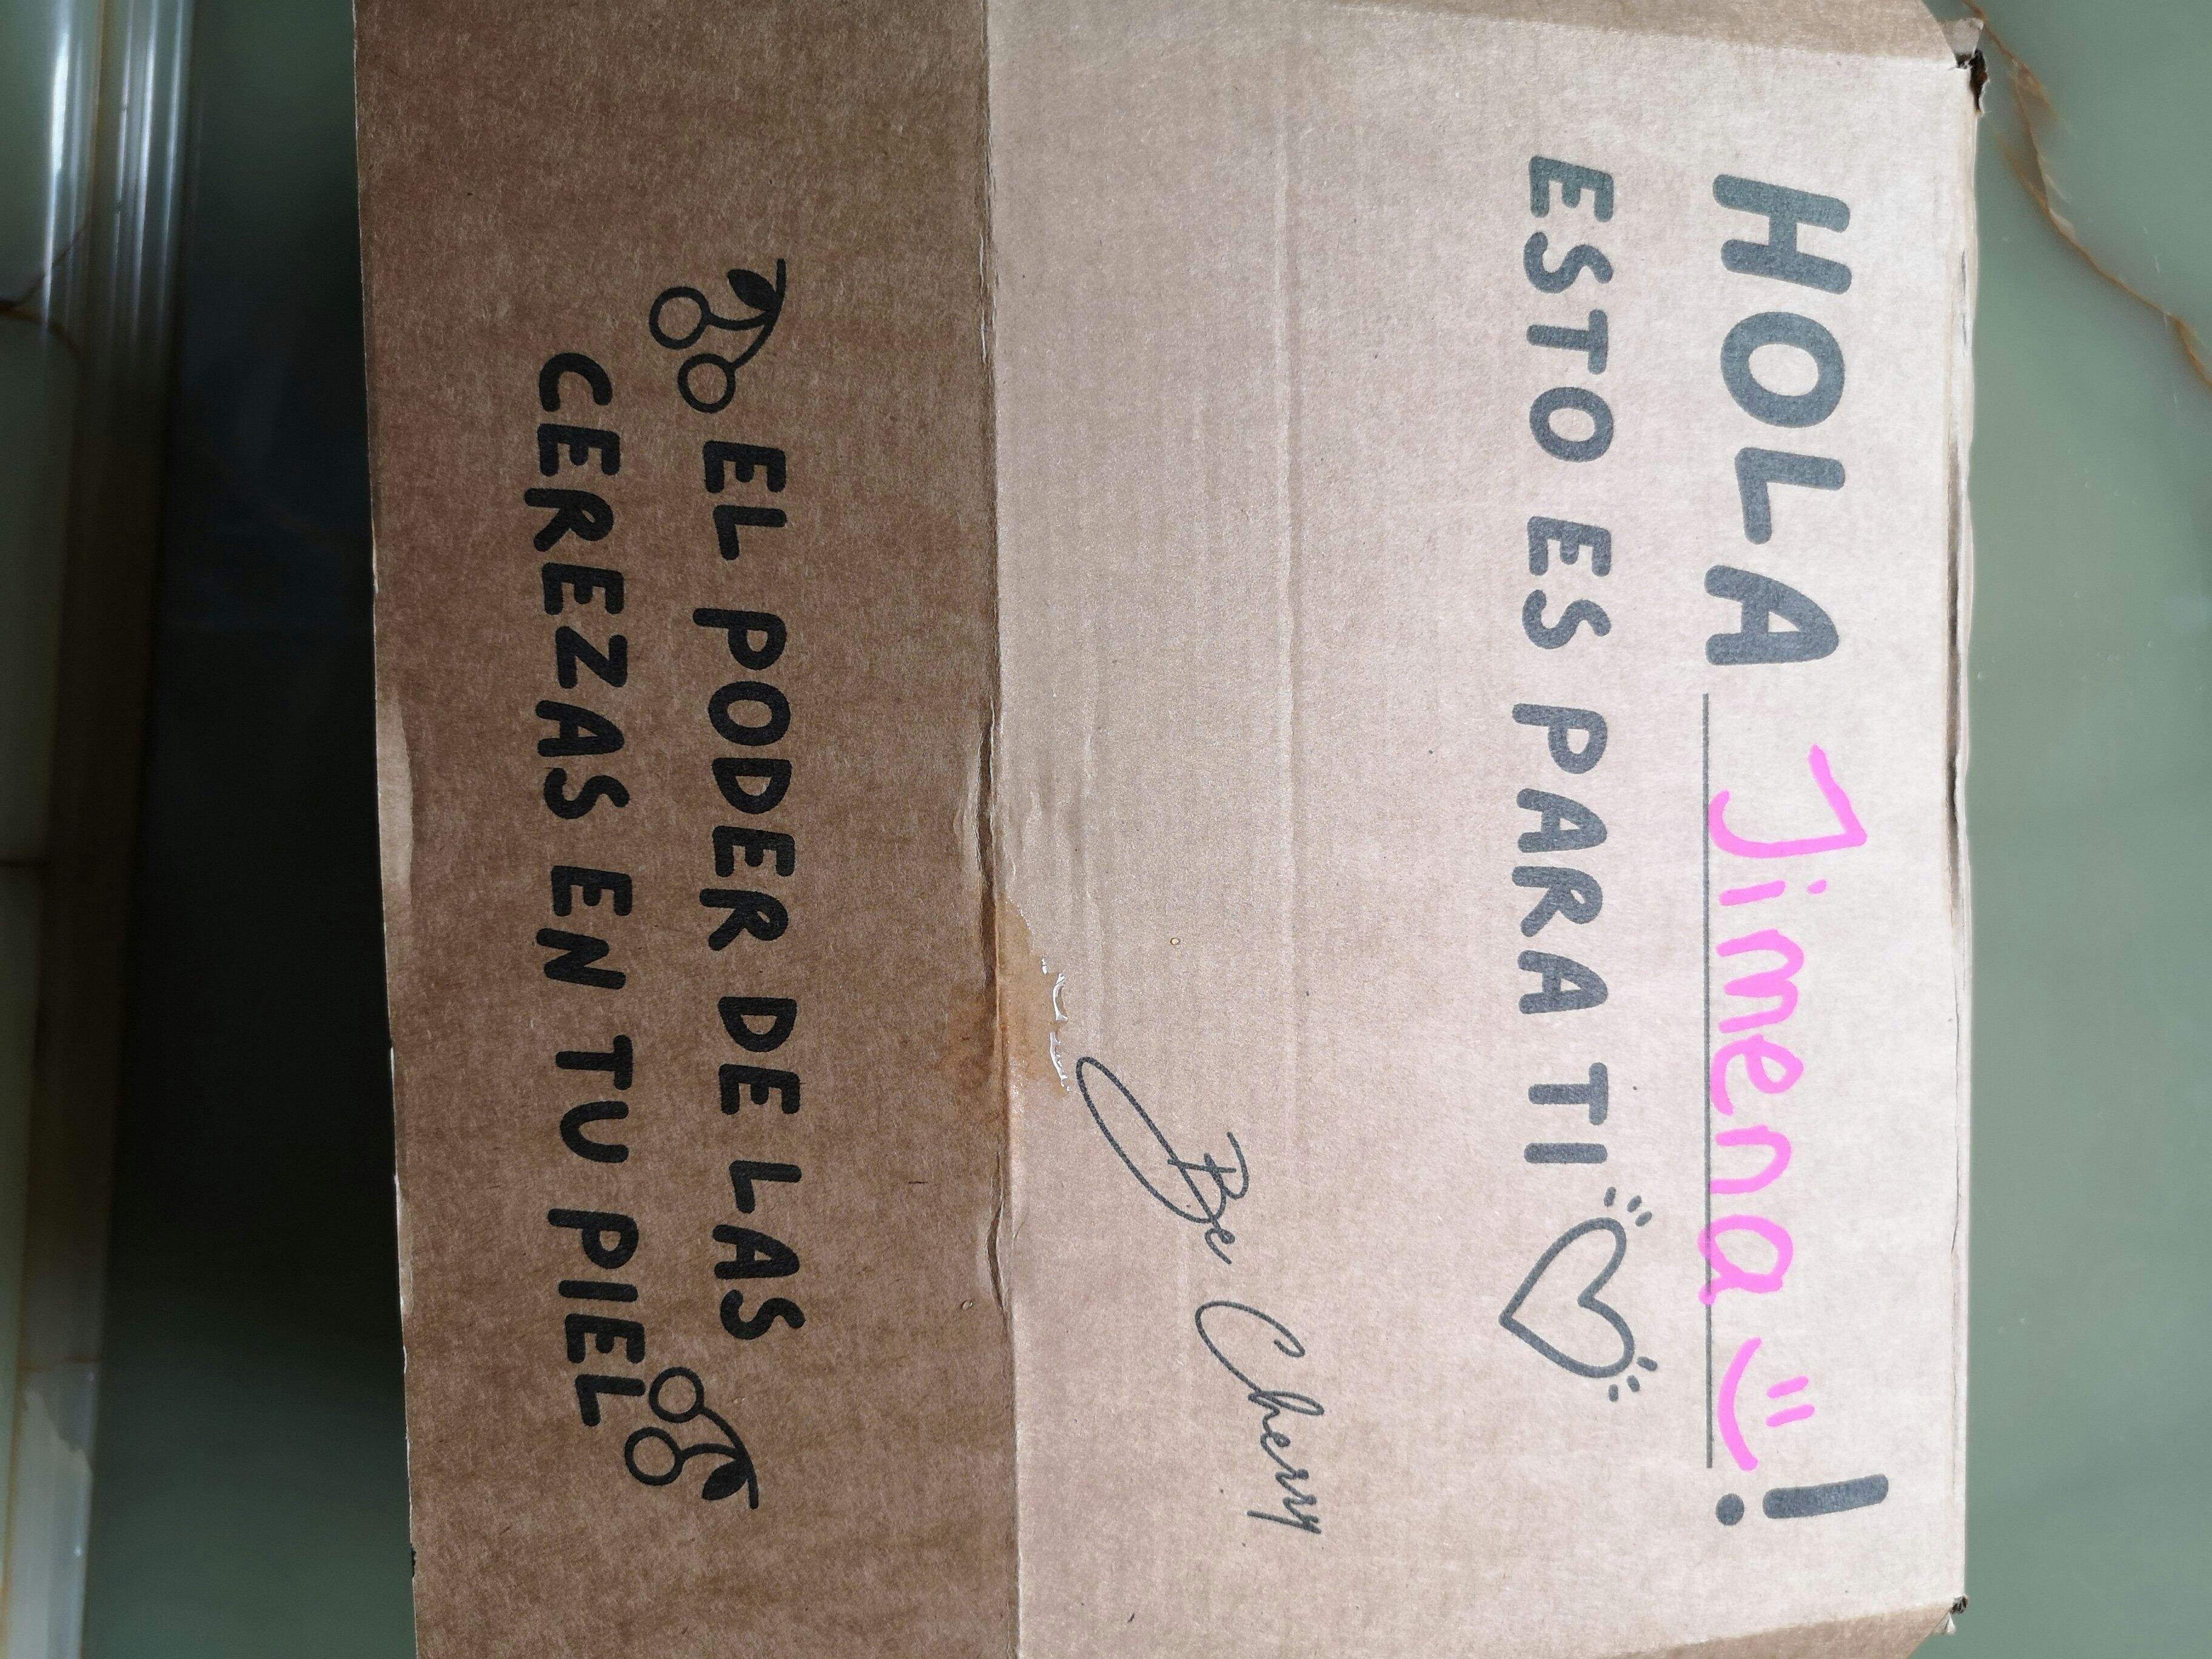 HOLA Jimena !
ESTO ES PARA TI
Be Cherry
EL PODER DE LAS
CEREZAS EN TU PIEL